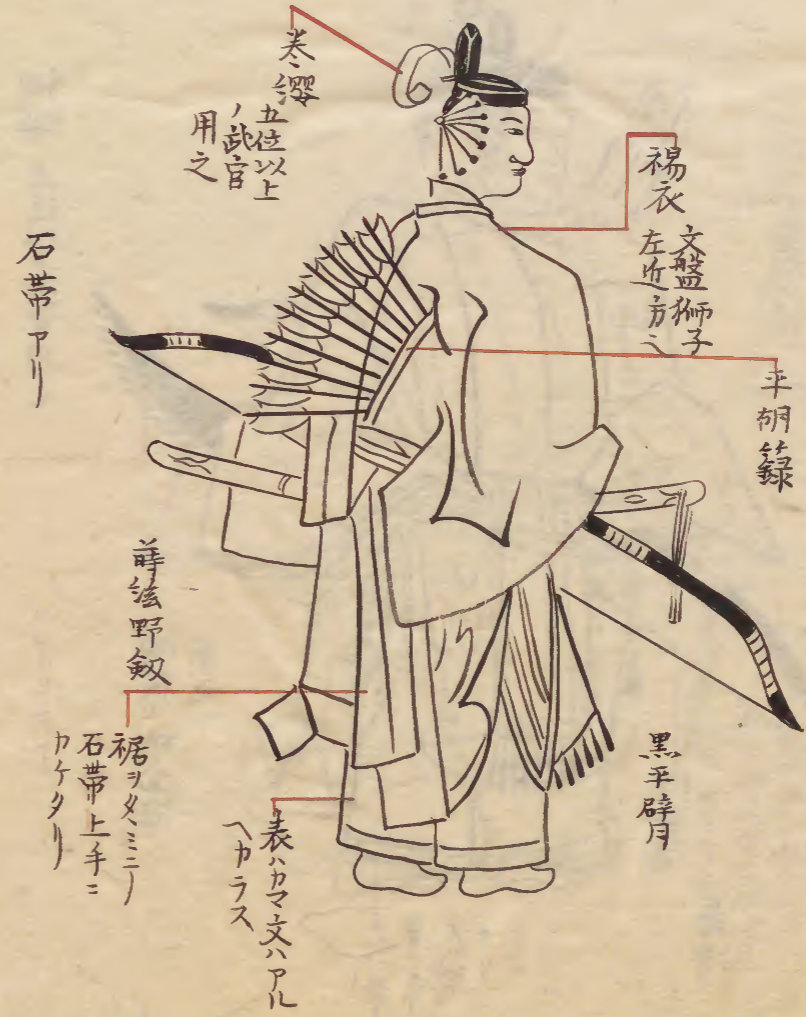 巻纓
五位以上
ノ武官
用之
褐衣
文盤獅子
左近方之
平胡籙
石帯アリ
蒔絵野釼
裾ヲタヽミニノ
石帯上手ニ
カケタリ
表ハカマ文ハアル
ヘカラス
黒平臂